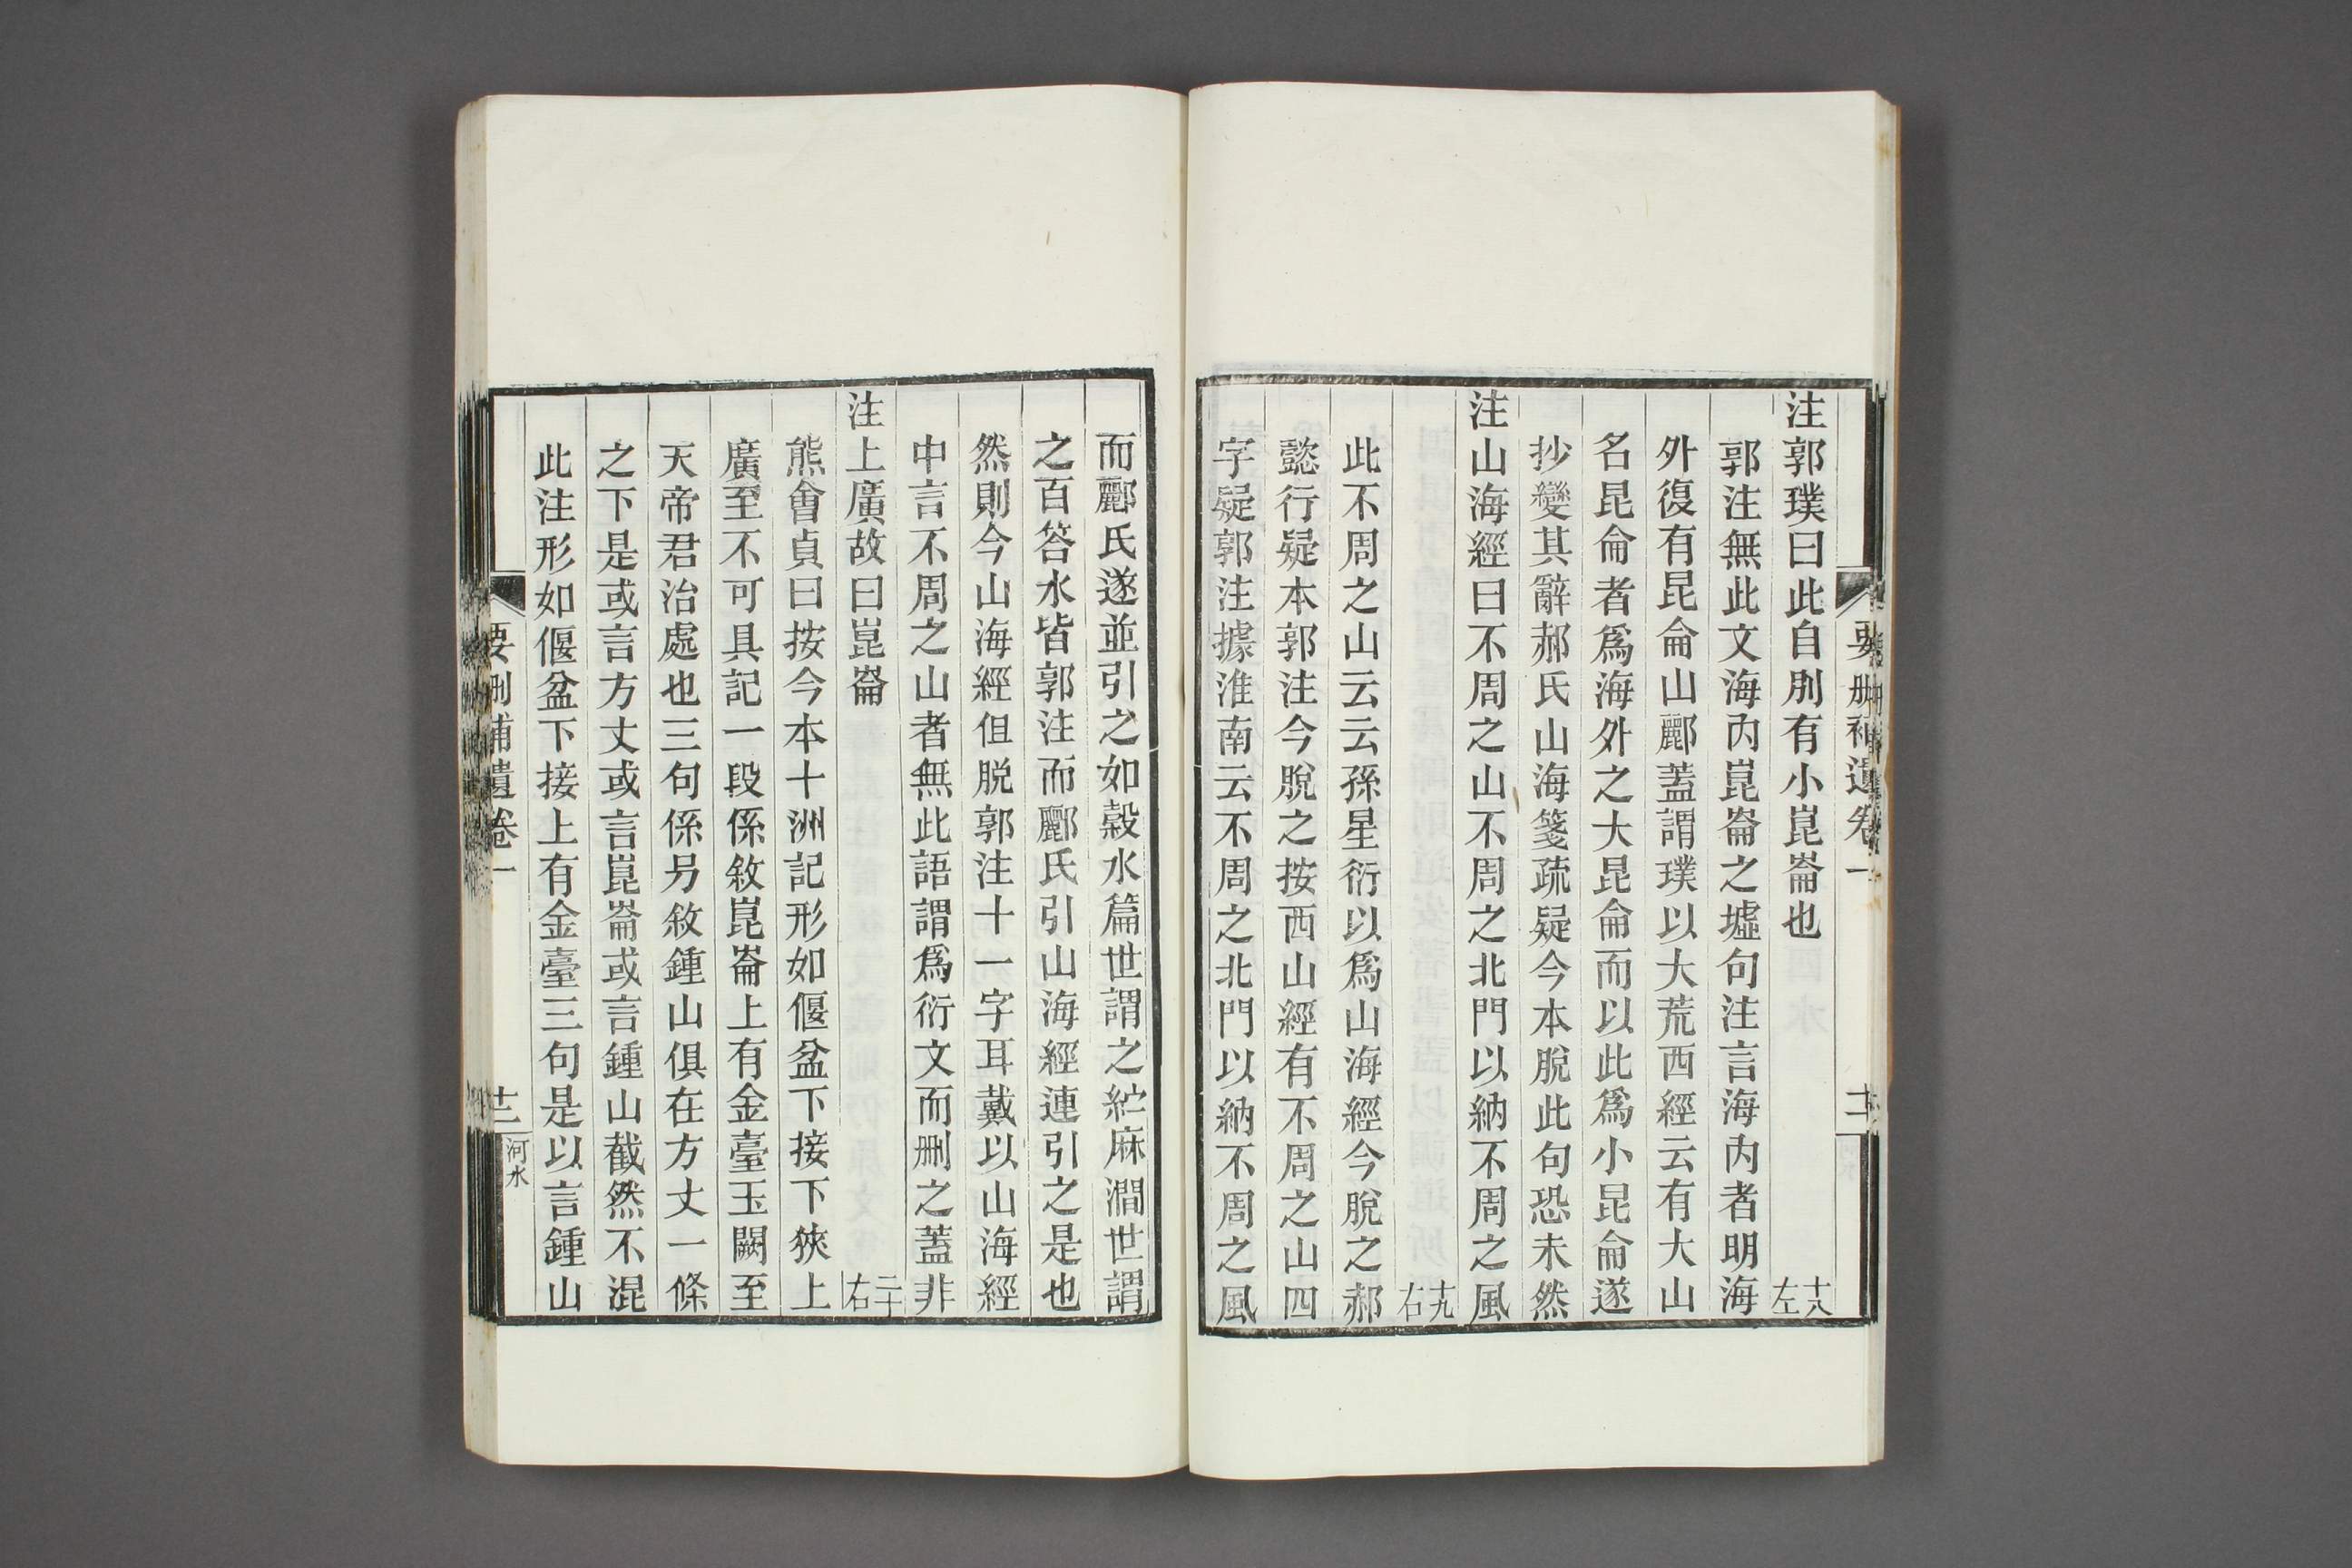 注郭璞曰此自別有小崑崙也 十八左
郭注無此文海內崑崙之墟句注言海內者明海
外復有昆侖山酈蓋謂璞以大荒西經云有大山
名昆侖者爲海外之大昆侖而以此爲小昆侖遂
抄變其辭郝氏山海箋疏疑今本脫此句恐未然
注山海經曰不周之山不周之北門以納不周之風
十九右
此不周之山云云孫星衍以爲山海經今脫之郝
懿行疑本郭注今脫之按西山經有不周之山四
字疑郭注據淮南云不周之北門以納不周之風
而酈氏遂並引之如穀水篇世謂之紵麻澗世謂
之百答水皆郭注而酈氏引山海經連引之是也
然則今山海經但脫郭注十一字耳戴以山海經
中言不周之山者無此語謂爲衍文而刪之蓋非
注上廣故曰崑崙 二十右
熊會貞曰按今本十洲記形如偃盆下接下狹上
廣至不可具記一段係敘崑崙上有金臺玉闕至
天帝君治處也三句係另敘鍾山俱在方丈一條
之下是或言方丈或言崑崙或言鍾山截然不混
此注形如偃盆下接上有金臺三句是以言鍾山
要刪補遺卷一
河水